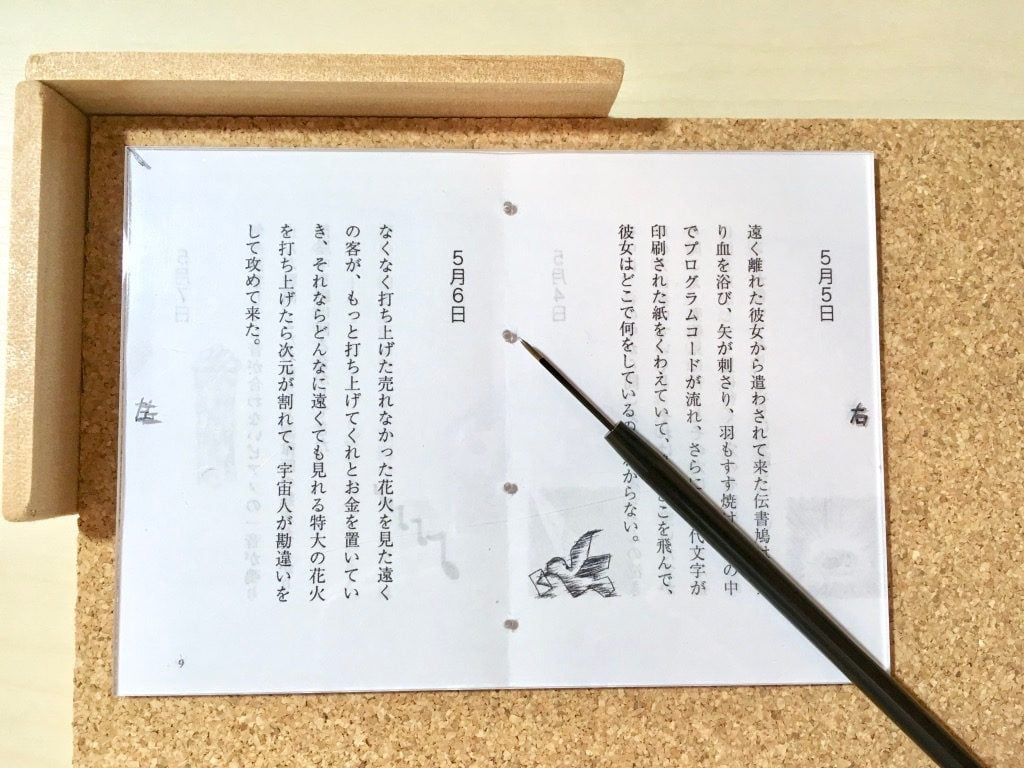 右
5月5日
遠く離れた彼女から遣わされて来た伝書鳩は
り血を浴び、矢が刺さり、羽もすす焼け の中
でプログラムコードが流れ、さらに 代文字が
印刷された紙をくわえていて、 こを飛んで、
彼女はどこで何をしているの からない。
5月6日
なくなく打ち上げた売れなかった花火を見た遠く
の客が、もっと打ち上げてくれとお金を置いてい
き、それならどんなに遠くても見れる特大の花火
を打ち上げたら次元が割れて、宇宙人が勘違いを
して攻めて来た。
左
9